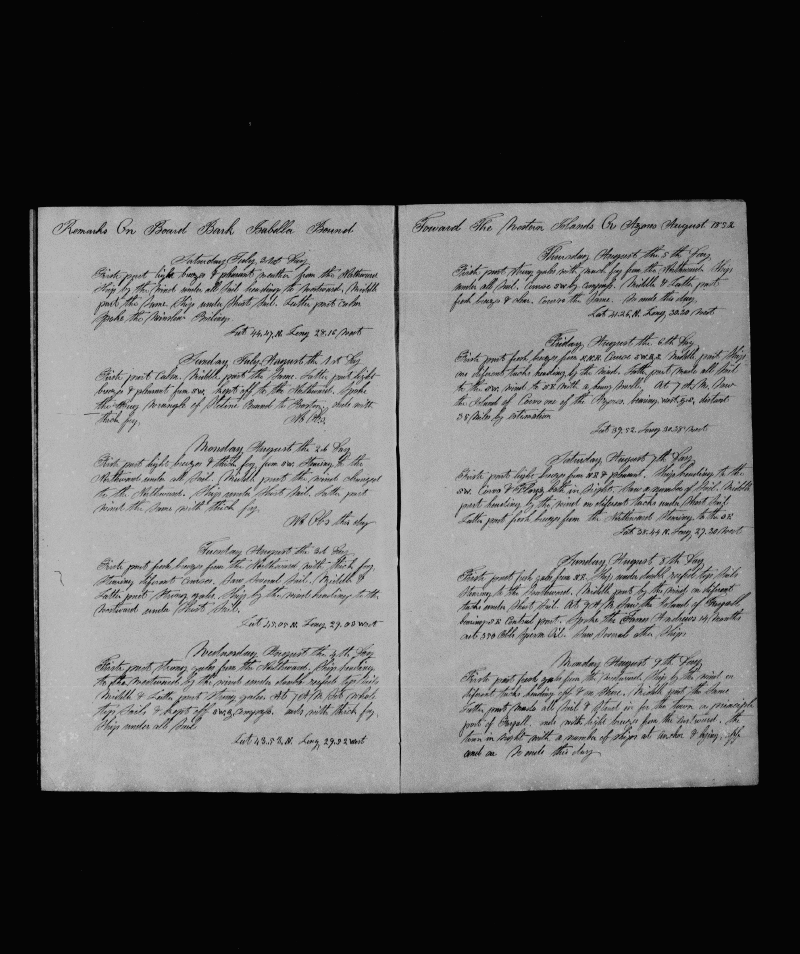 Remarks On Board Bark Isabella Bound
Saturday July 31st Day
First part light breeze & pleasant weather from the Northward
Ship by the wind under all sail heading to westward. Middle
part the same Ship under Short Sail. Latter part calm
Spoke the
Lat 44.47 N. Long 28.16 West
Sunday July August the 1st Day
First part Calm. Middle part the same. Latter part light
breeze & pleasant from SW. kept off to the Northward. Spoke
the of Bound to Boston. ends with
thick fog. No Obs.
Monday August the 2d Day
First part light breeze & thick fog from SW. Steering to the
Northward under all Sail. Middle part the wind changed
to the Northward. Ship under Short Sail. Latter part
wind the same with thick fog.
No Obs this day
Tuesday August the 3d Day
First part fresh breeze from the Northward with thick fog.
Steering different courses. Saw Several Sail. Middle &
Latter part Strong gales. Ship by the wind heading to the
westward under Short Sail.
Lat 45.05 N. Long 29.08 West
Wednesday August the 4th Day
First part Strong gales from the Northward. Ship heading
to the Westward by the wind under double reefed top Sails
Middle & Latter part Strong gales. At 7 A.M. Set whole
top Sails & kept off SW by compass. ends with thick fog.
Ship under all Sail
Lat 43.58 N. Long 29.52 West
Toward The Western Islands Or Azores August 1852
Thursday August the 5th Day
First part strong gales with much fog from the Northward. Ship
under all Sail. Course SW by compass. Middle & Latter part
fresh breeze & clear. Course the Same. So ends this day.
Lat 41.26 N. Long 30.20 West
Friday August the 6th Day
First part fresh breeze from N.N.E. Course Middle part Ship
on different tacks heading by the wind. Latter part made all Sail
to the SW. wind to NE with a heavy swell. At 7 A.M. Saw
the Island of Corvo one of the Azores bearing distant
38 miles by estimation
Lat 39.52 Long 30.58 West
Saturday August 7th Day
First part light breeze from NE & pleasant. Ship heading to the
SW. Corvo & Flores both in Sight. Saw a number of Sail. Middle
part heading by the wind on different tacks under Short Sail
Latter part fresh breeze from the Northward Steering to the SE
Lat 38.44 N. Long 29.20 West
Sunday August 8th Day
First part fresh gales from NE. Ship under double reefed top Sails
Steering to the Southward. Middle part by the wind on different
tacks under Short Sail. At 9 A.M. Saw the Island of Fayall
bearing SE Central point. Spoke the Andrews 24 months
out 350 bbls Sperm Oil. Saw Several other Ships
Monday August 9th Day
First part fresh gales from the Northward. Ship by the wind on
different tacks heading off & on Shore. Middle part the Same
Latter part made all Sail & Stood in for the town or principle
port of Fayall. ends with light breeze from the Northward. the
town in sight with a number of ships at anchor & lying off
and on So ends this day